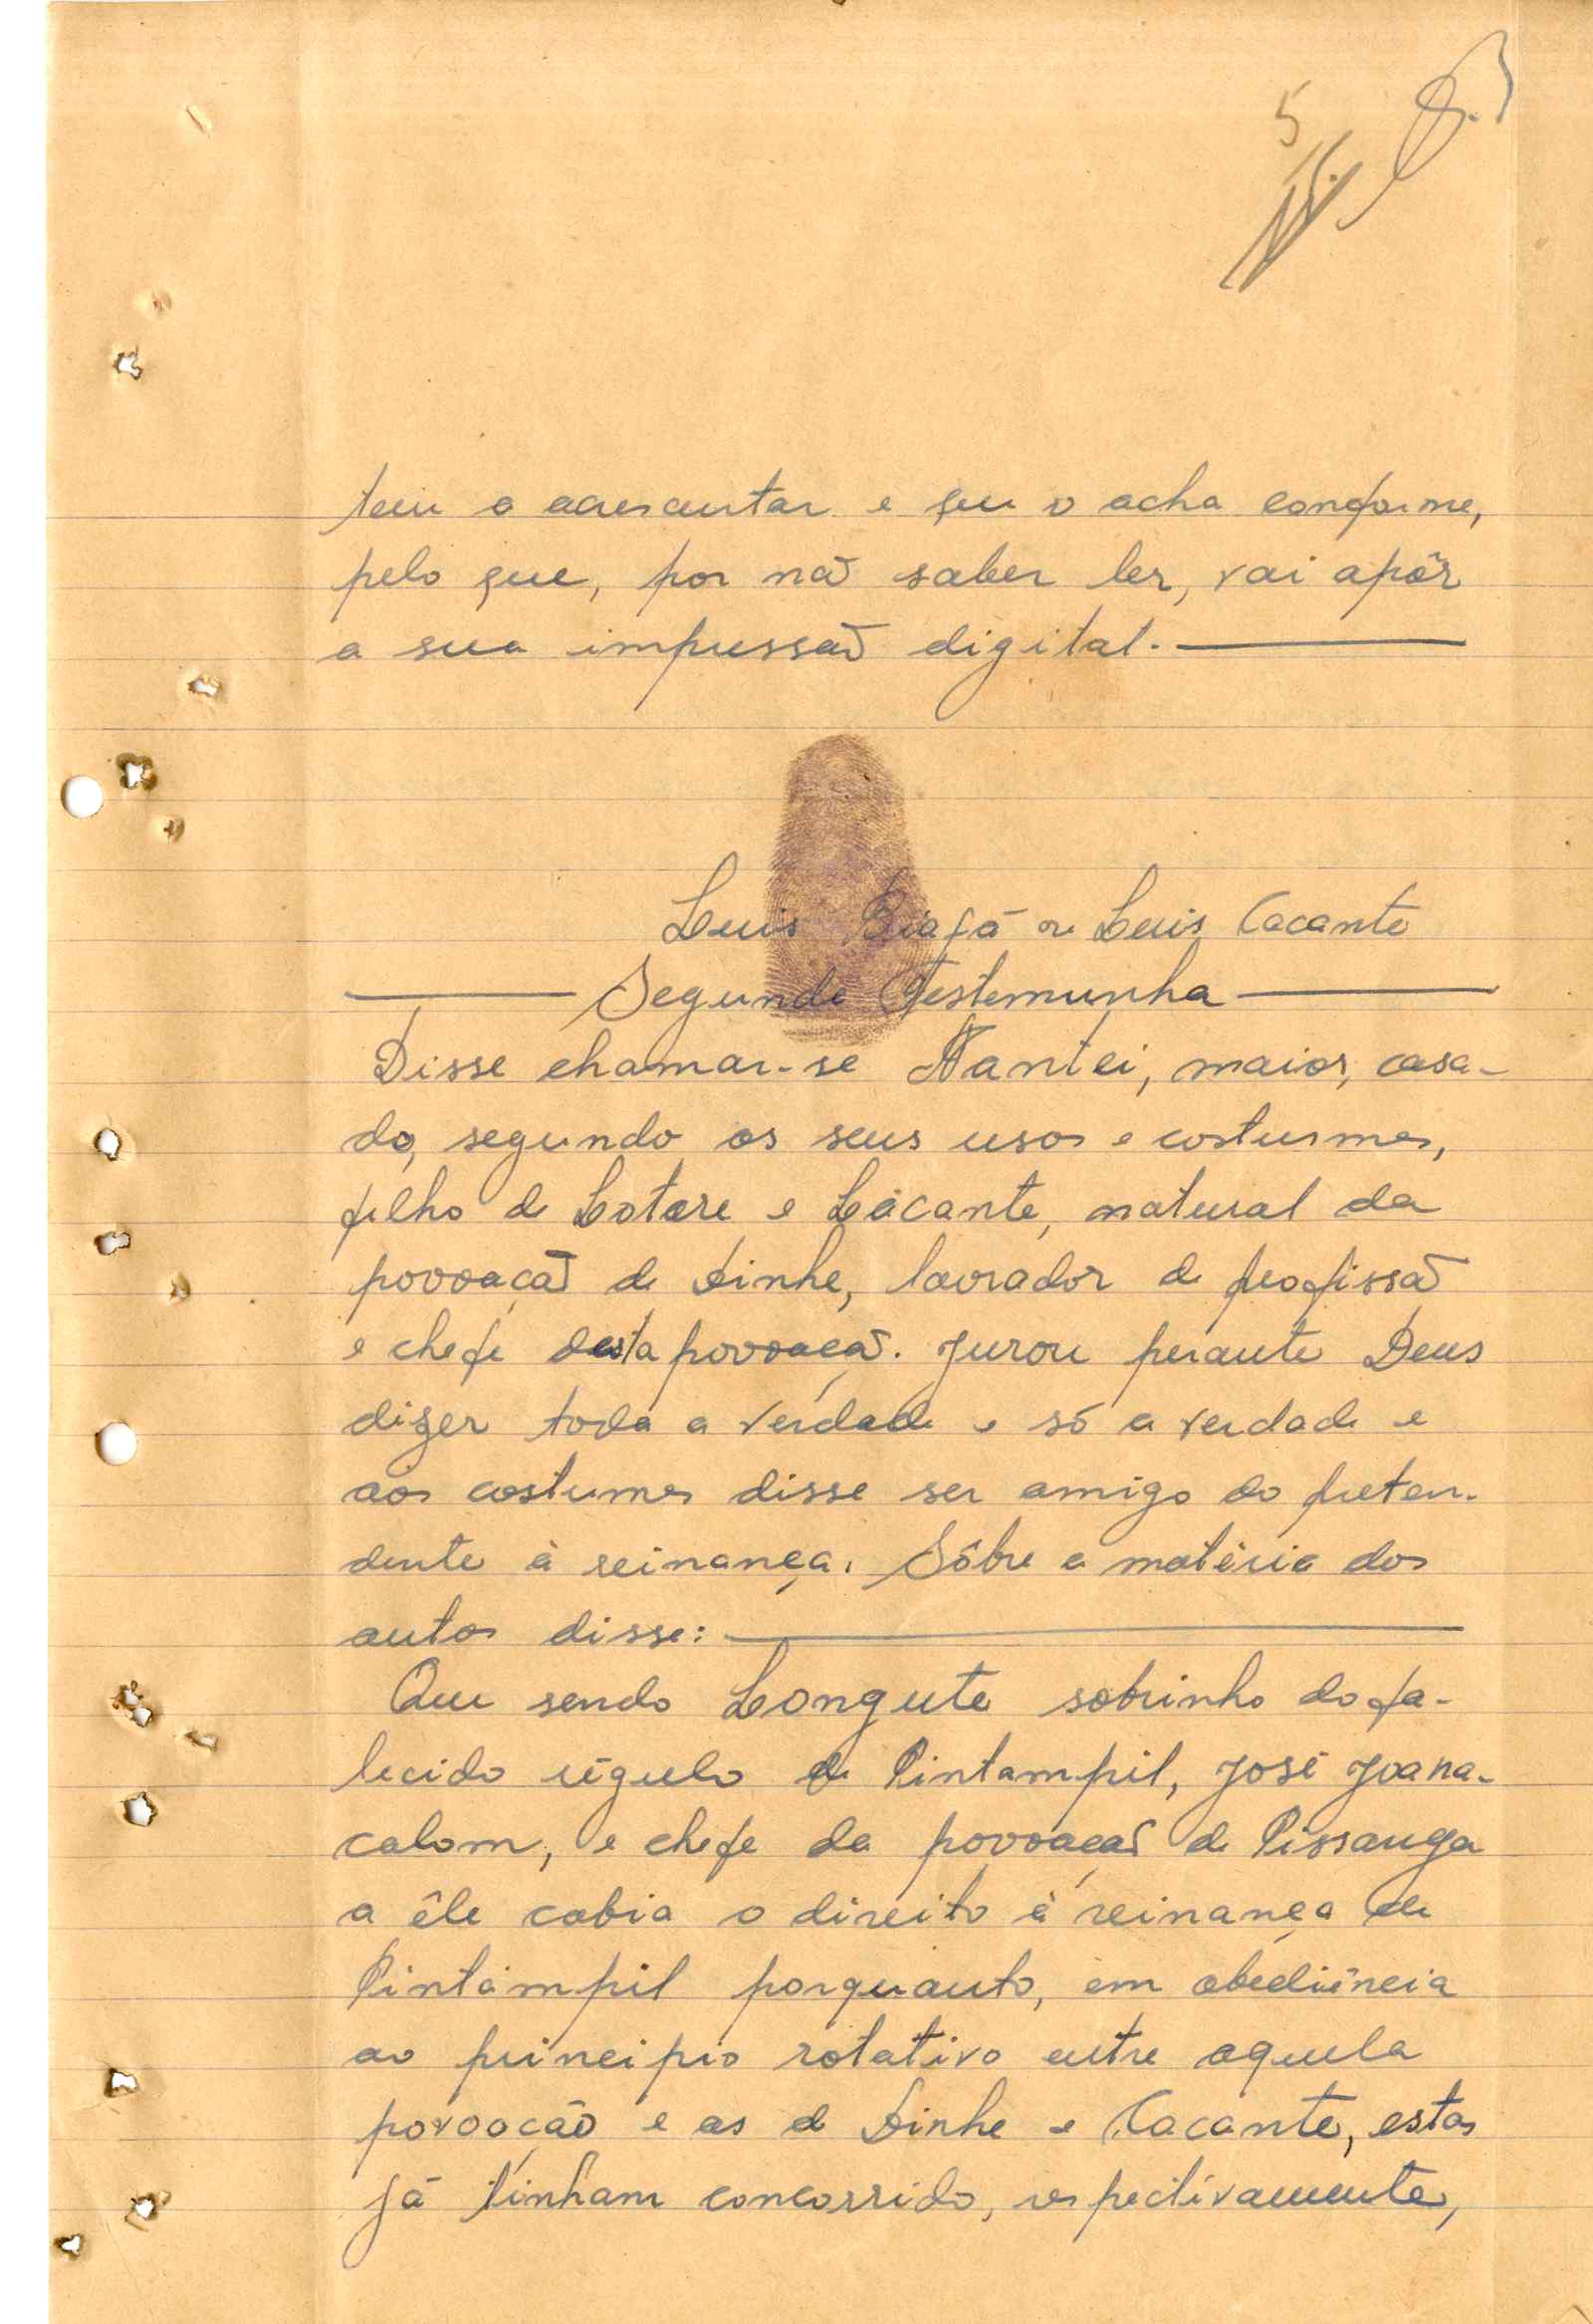 5
tem a acrescentar e que o acha conforme,
pelo que, por não saber ler, vai apôr
a sua impressão digital.
Luis Biafá ou Luis Cacante
Segunda Testemunha
Disse chamar-se Nantei, maior, casa-
do, segundo os seus usos e costumes,
filho de Lotare e Lácante, natural da
povoação de Dinhe, lavrador de profissão
e chefe desta povoação. Jurou perante Deus
dizer toda a verdade e só a verdade e
aos costumes disse ser amigo do preten-
dente à reinança. Sôbre a matéria dos
autos disse:
Que sendo Longute sobrinho do fa-
lecido régulo de Pintampil, José Joana-
calom, e chefe da povoação de Pissanga
a êle cabia o direito à reinança de
Pintampil porquanto, em obediência
ao principio rotativo entre aquela
povoação e as de Dinhe e Cacante, estas
já tinham concorrido, respectivamente,